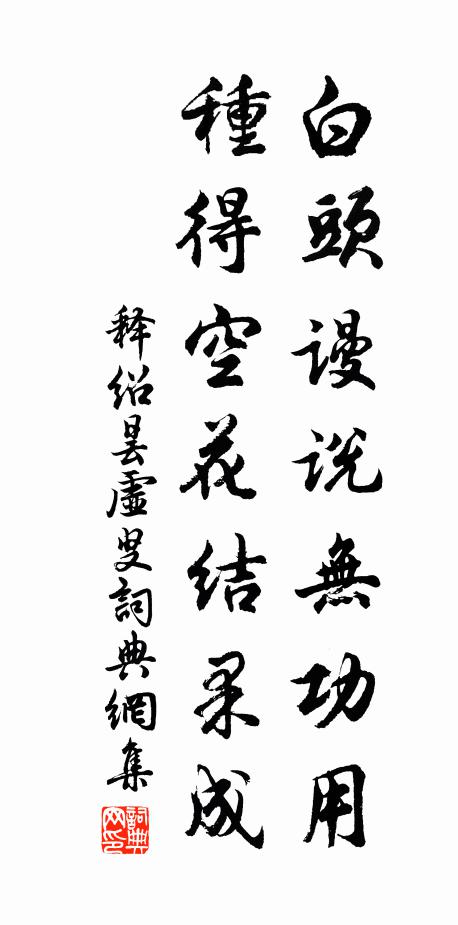 白頭謾説無功用
種得空花結果成
释紹昙虛叟詞典網集
詞典网印